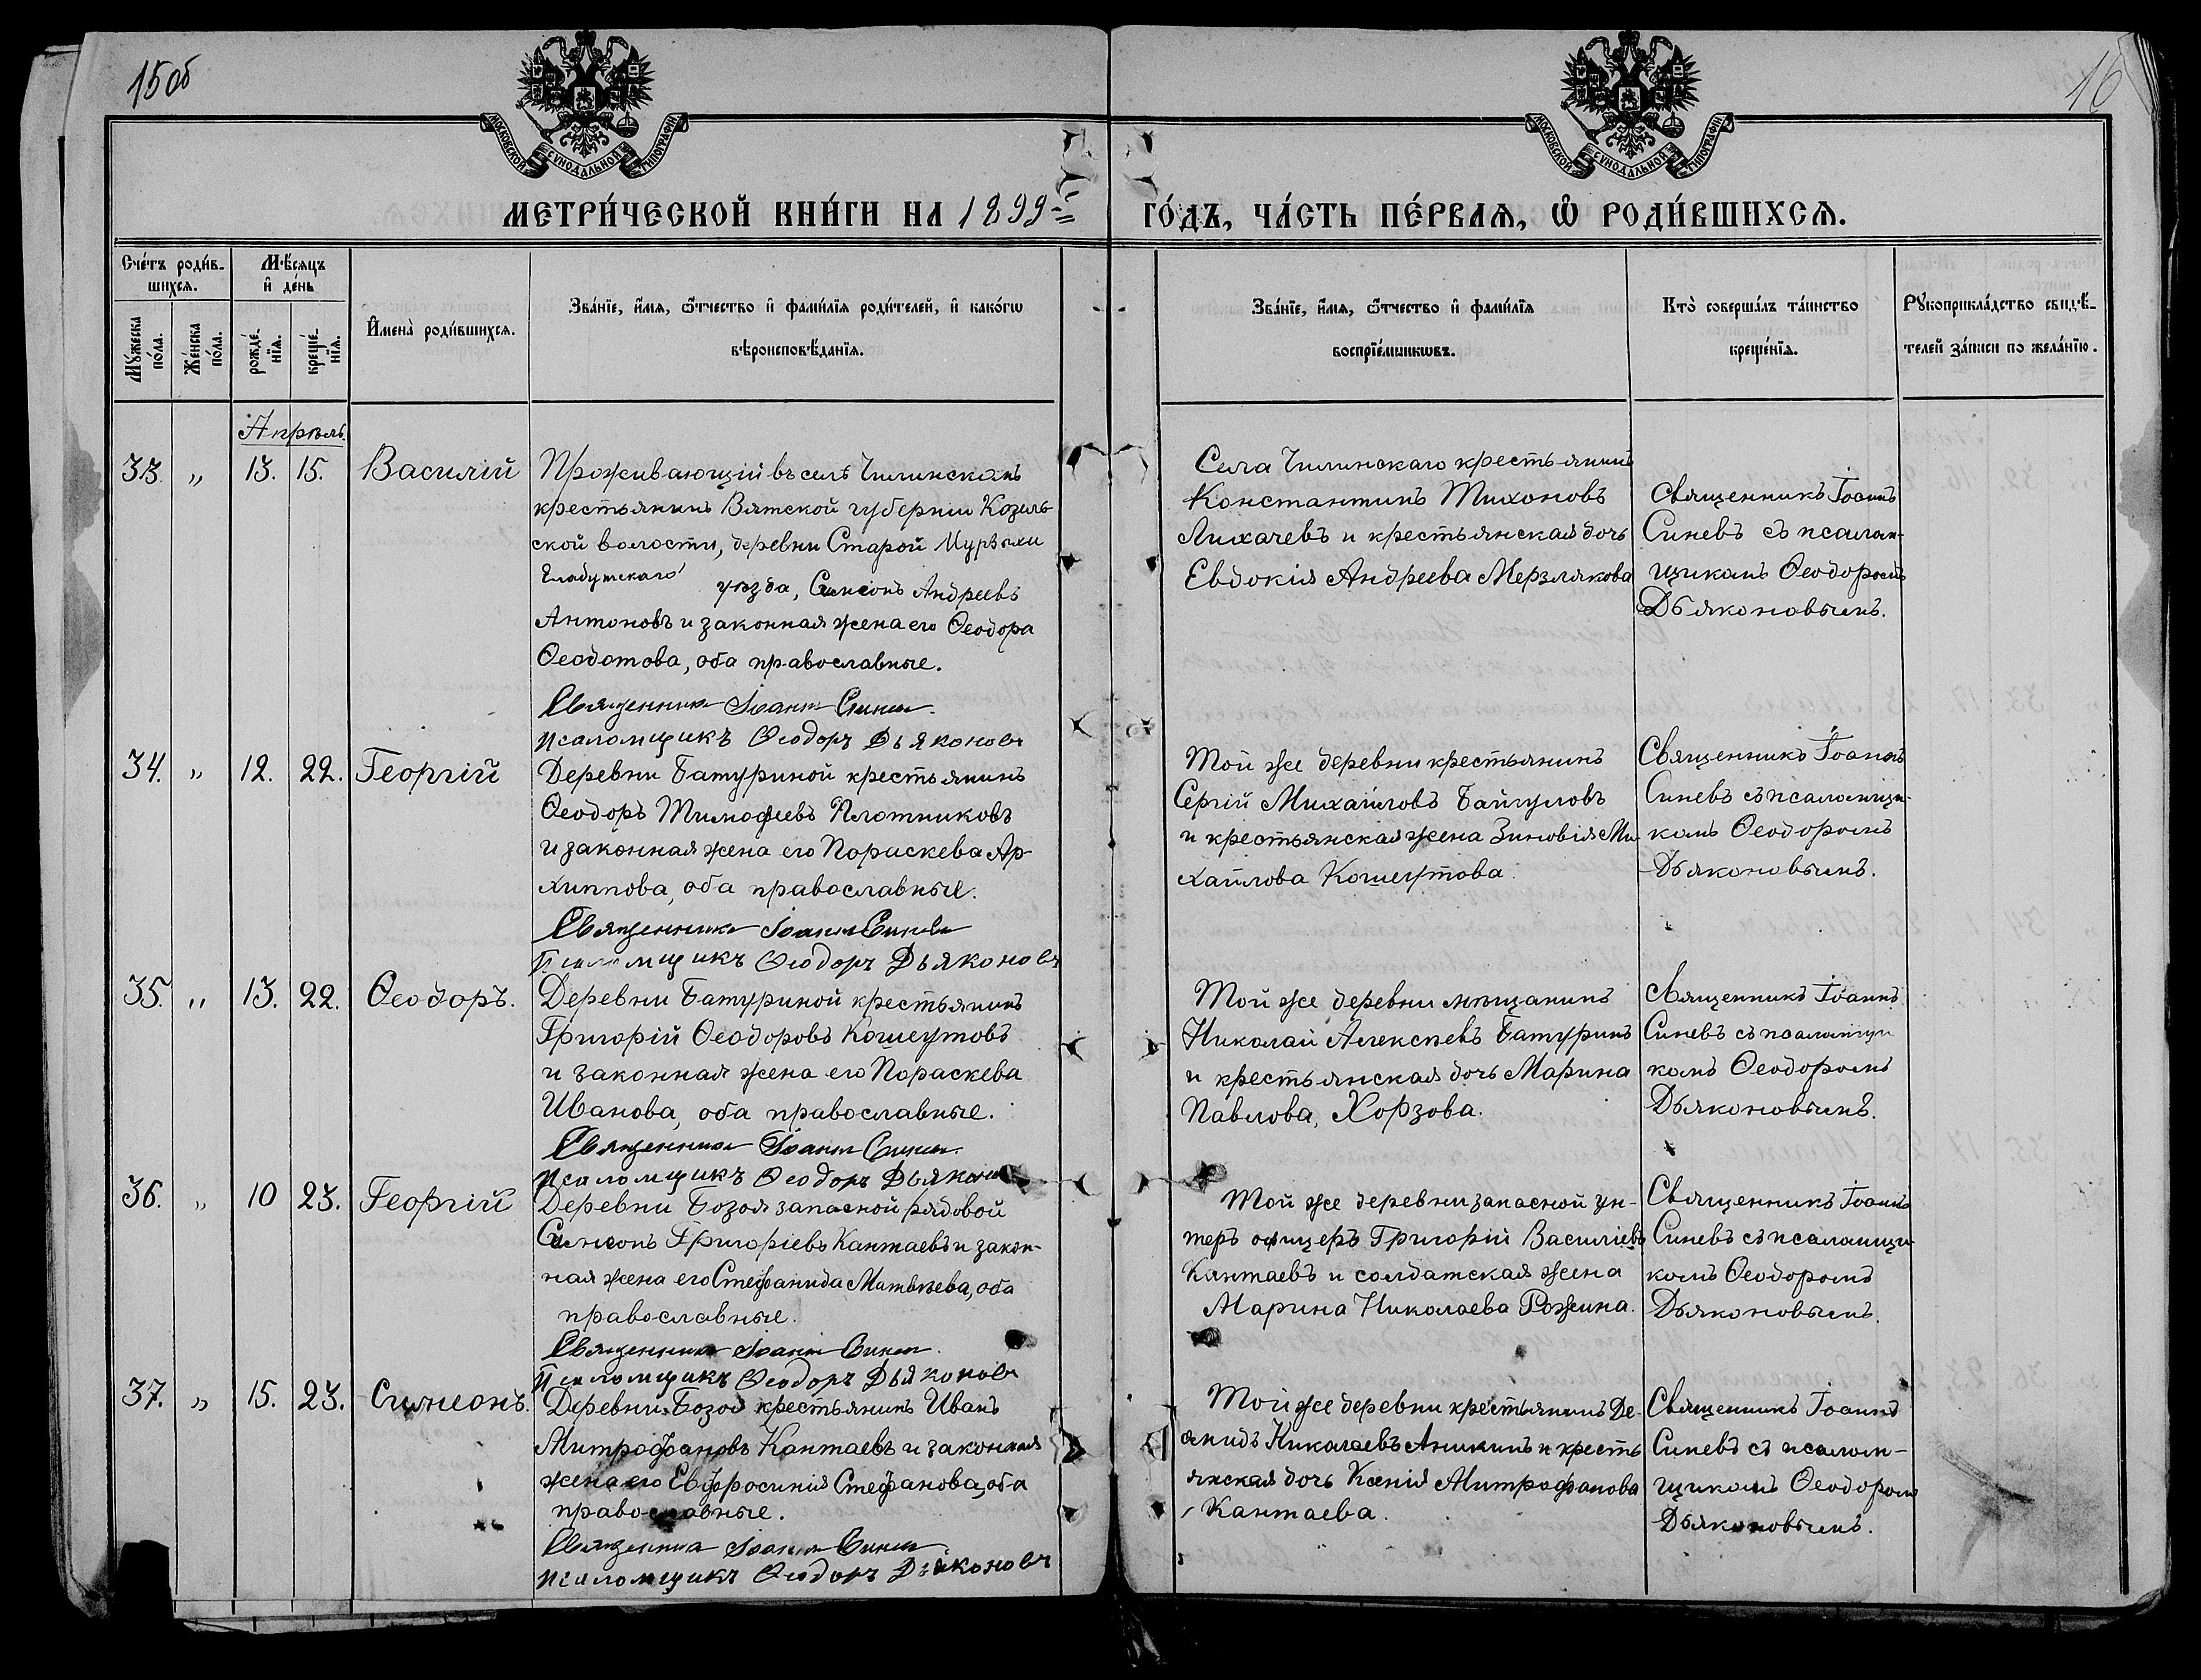 15 об
16
МОСКОВСКОЙ СѴНОДАЛЬНОЙ ТИПОГРАФІИ
МОСКОВСКОЙ СѴНОДАЛЬНОЙ ТИПОГРАФІИ
МЕТРИ́ЧЕСКОЙ КНИ́ГИ НА 1899 ГО́ДЪ, ЧА́СТЬ ПЕ́РВАѦ, Ѡ҆ РОДИ́ВШИХСѦ.
Сче́тъ роди́в-
шихсѧ.
Мꙋ́жеска
по́ла.
Же́нска
по́ла.
Мѣ́сѧцъ
и҆ де́нь
рожде́-
нїѧ.
креще́-
нїѧ.
И҆мена̀ роди́вшихсѧ.
Зва́нїе, и҆́мѧ, ѻ҆́тчество и҆ фами́лїѧ роди́телей, и҆ како́гѡ
вѣроисповѣ́данїѧ.
Зва́нїе, и҆́мѧ, ѻ҆́тчество и҆ фами́лїѧ
воспрїе́мникѡвъ.
Кто̀ соверша́лъ та́инство
креще́нїѧ.
Рꙋкоприкла́дство свидѣ́-
телей за́писи по жела́нїю.
Апрѣль.
33. „ 13. 15. Василій
Проживающій въ селѣ Чилинскомъ
крестьянинъ Вятской губерніи Козиль
ской волости, деревни Старой Мурзихи
Елабужскаго уѣзда, Симеонъ Андреевъ
Антоновъ и законная жена его Ѳеодора
Ѳеодотова, оба православные.
Священникъ Іоаннъ Синевъ.
Псаломщикъ Ѳеодоръ Дьяконовъ
Села Чилинскаго крестьянинъ
Константинъ Тихоновъ
Лихачевъ и крестьянская дочь
Евдокія Андреева Мерзлякова
Священникъ Іоаннъ
Синевъ съ псалом-
щикомъ Ѳеодоромъ
Дьяконовымъ.
34. „ 12. 22. Георгій
Деревни Батуриной крестьянинъ
Ѳеодоръ Тимофеевъ Плотниковъ
и законная жена его Пораскева Ар
хиппова, оба православные.
Священникъ Іоаннъ Синевъ
Псаломщикъ Ѳеодоръ Дьяконовъ
Той же деревни крестьянинъ
Сергій Михайловъ Байгуловъ
и крестьянская жена Зиновія Ми
хайлова Кошеутова.
Священникъ Іоаннъ
Синевъ съ псаломщи-
комъ Ѳеодоромъ
Дьяконовымъ.
35. „ 13. 22. Ѳеодоръ.
Деревни Батуриной крестьянинъ
Григорій Ѳеодоровъ Кошеутовъ
и законная жена его Пораскева
Иванова, оба православные.
Священникъ Іоаннъ Синевъ.
Псаломщикъ Ѳеодоръ Дьяконовъ
Той же деревни мѣщанинъ
Николай Алексѣевъ Батуринъ
и крестьянская дочь Марина
Павлова, Хорзова.
Священникъ Іоаннъ
Синевъ съ псаломщи
комъ Ѳеодоромъ
Дьяконовымъ.
36. „ 10 23. Георгій
Деревни Бозоя запасной рядовой
Симеонъ Григоріевъ Кантаевъ и закон-
ная жена его Стефанида Матвѣева, оба
православные.
Священникъ Іоаннъ Синевъ.
Псаломщикъ Ѳеодоръ Дьяконовъ
Той же деревни запасной ун-
теръ офицеръ Григорій Василіевъ
Кантаевъ и солдатская жена
Марина Николаева Рожина.
Священникъ Іоаннъ
Синевъ съ псаломщи-
комъ Ѳеодоромъ
Дьяконовымъ.
37. „ 15. 23. Симеонъ.
Деревни Бозоя крестьянинъ Иванъ
Митрофановъ Кантаевъ и законная
жена его Евфросинія Стефанова, оба
православные.
Священникъ Іоаннъ Синевъ.
Псаломщикъ Ѳеодоръ Дьяконовъ
Той же деревни крестьянинъ Де-
анидъ Николаевъ Аникинъ и кресть
янская дочь Ксенія Митрофанова
Кантаева.
Священникъ Іоаннъ
Синевъ съ псалом-
щикомъ Ѳеодоромъ
Дьяконовымъ.